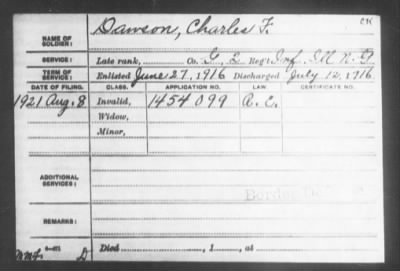 CK
NAME OF SOLDIER: Dawson, Charles F.
SERVICE: Late rank, Co. G, Reg't Inf.
TERM OF SERVICE: Enlisted June 27, 1916 Discharged July 12, 1916
DATE OF FILING. CLASS. APPLICATION NO. LAW CERTIFICATE NO.
1921 Aug. 8 Invalid, 1454099
Widow,
Minor,
ADDITIONAL SERVICES:
REMARKS:
Died , 1 , at